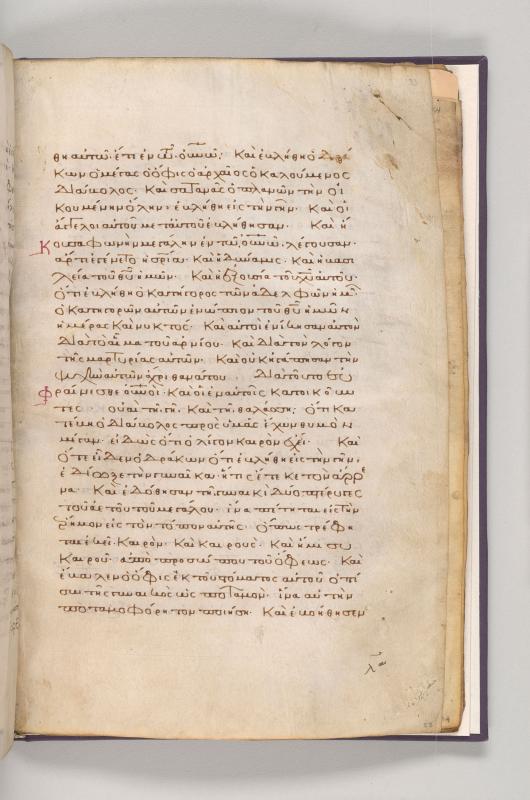 θη αὐτῶ. ἔτι ἐν τῶ οὐνῶ· Καὶ ἐβλήθη ὁ δρά
κων ὁ μέγας ὁ ὄφις ὁ ἀρχαῖος ὁ καλούμενος
διάβολος. Καὶ σατανᾶς ὁ πλανῶν τὴν οἰ
κουμένην ὅλην. ἐβλήθη εἰς τὴν γῆν. Καὶ οἱ
ἄγγελοι αὐτοῦ μετ' αὐτοῦ ἐβλήθησαν. Καὶ ἤ
κουσα φωνὴν μεγάλην ἐν τῶ οὐνῶ. λέγουσαν.
ἄρτι ἐγένετο ἡ σρία. Καὶ ἡ δύναμις. Καὶ ἡ βασι
λεία τοῦ θυ ἡμῶν. Καὶ ἡ ἐξουσία τοῦ χυ αὐτοῦ.
Ὅτι ἐβλήθη ὁ κατήγορος τῶν ἀδελφῶν ἡμῶν
ὁ κατηγορῶν αὐτῶν ἐνώπιον τοῦ θυ ἡμῶν
ἡμέρας καὶ νυκτός. Καὶ αὐτοὶ ἐνίκησαν αὐτὸν
διὰ τὸ αἷμα τοῦ ἀρνίου. Καὶ διὰ τὸν λόγον
τῆς μαρτυρίας αὐτῶν. Καὶ οὐκ ἠγάπησαν τὴν
ψυχὴν αὐτῶν ἄχρι θανάτου. Διὰ τοῦτο εὐ
φραίνεσθε οὐνοὶ. Καὶ οἱ ἐν αὐτοῖς κατοικοῦν
τες. οὐαὶ τῇ γῇ. Καὶ τῇ θαλάσσῃ. Ὅτι κα
τέβη ὁ διάβολος πρὸς ὑμᾶς ἔχων θυμὸν
μέγαν. εἰδὼς ὅτι ὀλίγον καιρὸν ἔχει. Καὶ
ὅτε εἶδεν ὁ δράκων ὅτι ἐβλήθη εἰς τὴν γῆν.
ἐδίωξε τὴν γυναῖκα. ἥτις ἔτεκε τὸν ἄρρε
να. Καὶ ἐδόθησαν τῇ γυναικὶ δύο πτέρυγες
τοῦ ἀετοῦ τοῦ μεγάλου. ἵνα πέτηται εἰς τὴν
ἔρημον εἰς τὸν τόπον αὐτῆς. Ὅπως τρέφη
ται ἐκεῖ. Καιρὸν. Καὶ καιρούς. Καὶ ἥμισυ
καιροῦ. ἀπὸ προσώπου τοῦ ὄφεως. Καὶ
ἔβαλεν ὁ ὄφις ἐκ τοῦ στόματος αὐτοῦ ὀπί
σω τῆς γυναικὸς ὡς ποταμὸν. ἵνα αὐτὴν
ποταμοφόρητον ποιήσῃ. Καὶ ἐβοήθησεν